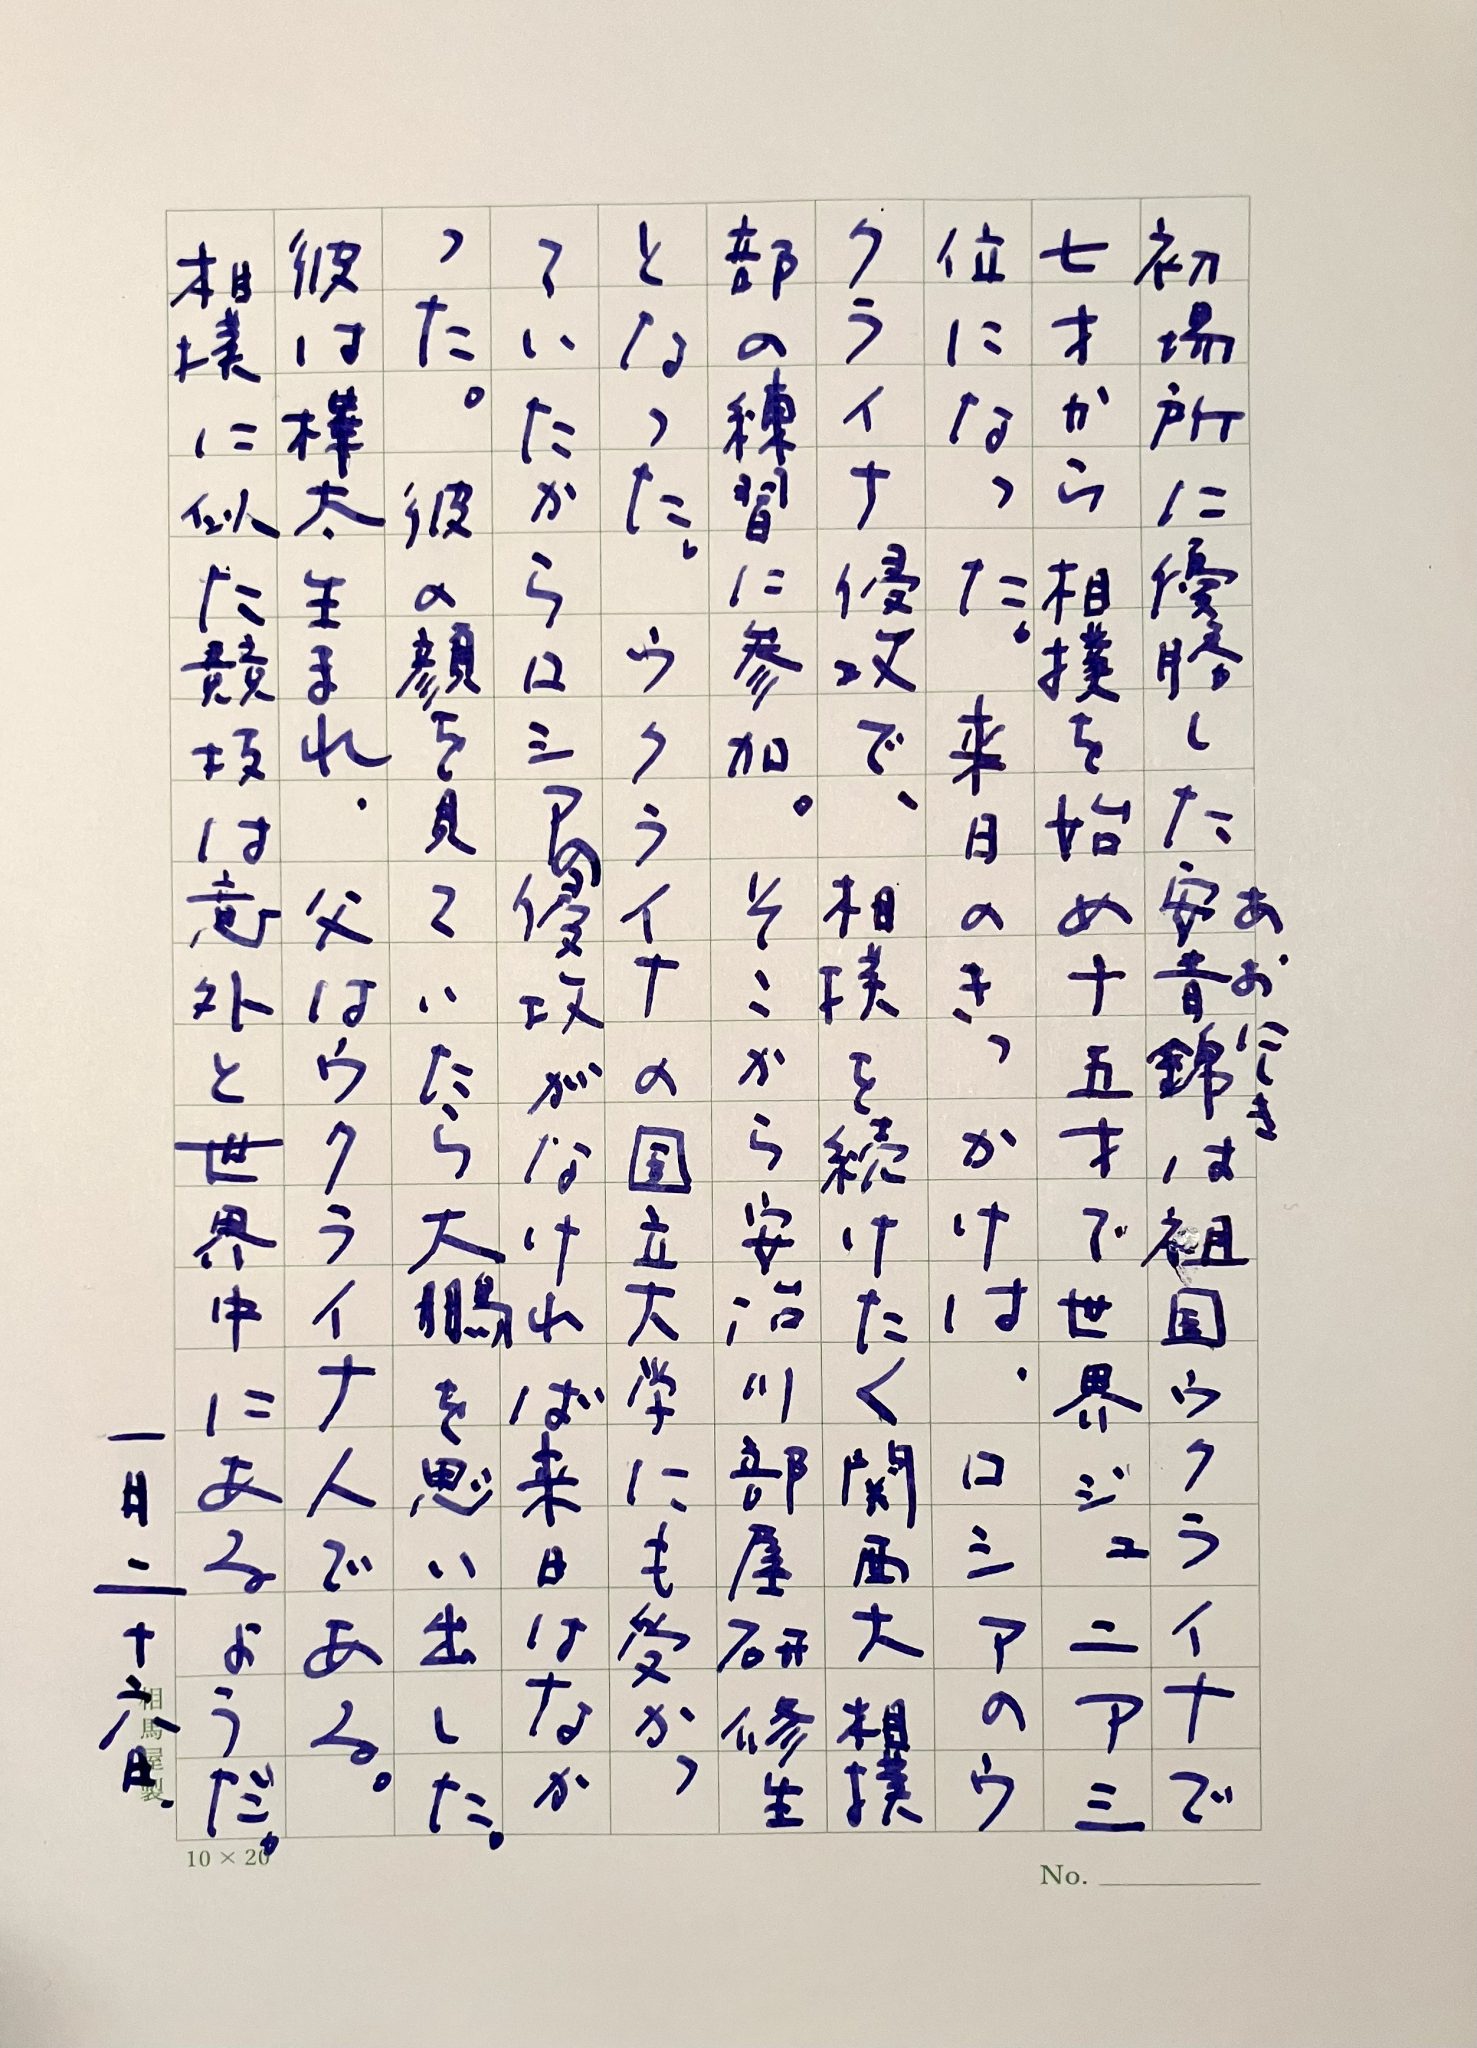 あおにしき
初場所に優勝した安青錦は祖国ウクライナで
七才から相撲を始め十五才で世界ジュニア三
位になった。来日のきっかけは、ロシアのウ
クライナ侵攻で、相撲を続けたく関西大相撲
部の練習に参加。そこから安治川部屋研修生
となった。ウクライナの国立大学にも受かっ
ていたからロシアの侵攻がなければ来日はなか
った。彼の顔を見ていたら大鵬を思い出した。
彼は樺太生まれ、父はウクライナ人である。
相撲に似た競技は意外と世界中にあるようだ。
一月二十六日
相馬屋製
10×20
No.